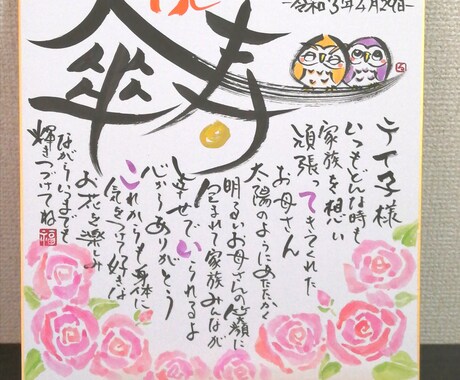 傘寿
-令和3年4月29日-
テイ子様
いつもどんな時も
家族を想い
頑張ってきてくれた
お母さん
太陽のようにあたたかく
明るいお母さんの笑顔に
包まれて家族みんなが
幸せでいられるよ
心からありがとう
これからも身体に
気をつけて好きな
お花を楽しみ
ながらいつまでも
輝きつづけてね
福